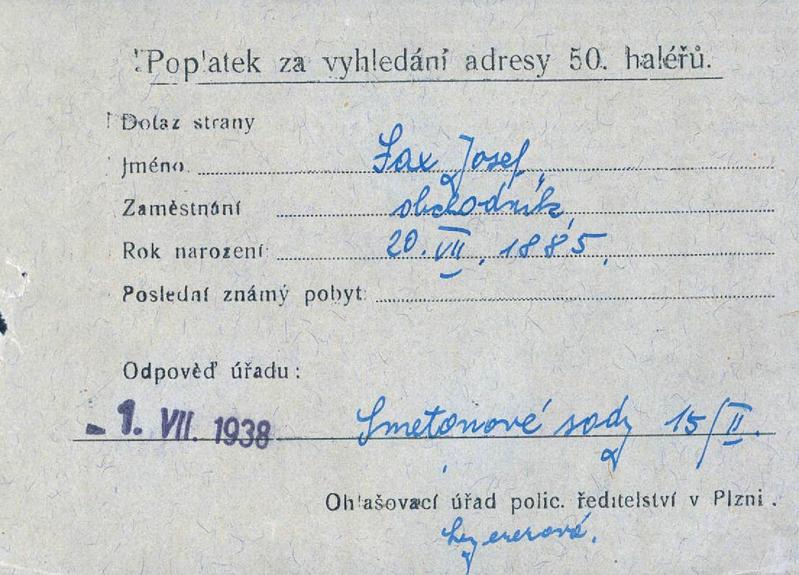 Poplatek za vyhledání adresy 50. haléřů.
Dotaz strany
Jméno Sax Josef,
Zaměstnání obchodník,
Rok narození: 20. VII. 1885.
Poslední známý pobyt:
Odpověď úřadu:
- 1. VII. 1938 Smetonové sady 15/II.
Ohlašovací úřad polic. ředitelství v Plzni.